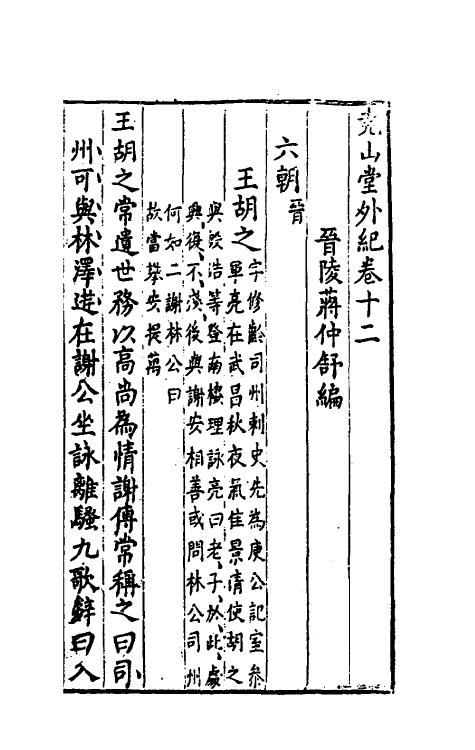 堯山堂外紀卷十二
晉陵蔣仲舒編
六朝 晉
王胡之 字修齡司州刺史先為庾公記室參
軍亮在武昌秋夜氣佳景清使胡之
與殷浩等登南樓理詠亮曰老子於此處
興復不淺後與謝安相善或問林公司州
何如二謝林公曰
故當攀安提萬
王胡之常遺世務以高尚為情謝傅常稱之曰司
州可與林澤遊在謝公坐詠離騷九歌辭曰入